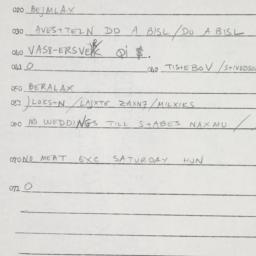 020 BEJMLAX
030 AVESTTELN DO A BISL/DO A BISL
040 VAS8-ERSVERK QI $.
041 0 042 TISTEBOV/
050 BERALAX
052 /LOKSTN/LAJXTE ZAXN7/MILXIKS
060 NO WEDDINGS TILL S+ABES NAXMU/
070 NO MEAT EXC SATURDAY HJN
071 0